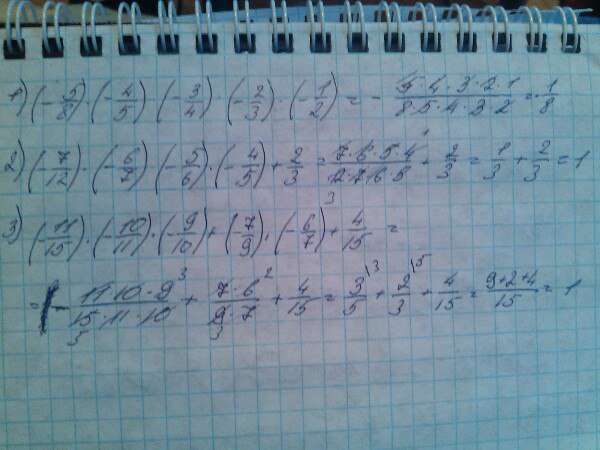 1) (-5/8)·(-4/5) (-3/4) (-2/3)·(-1/2) = - 5·4·3·2·1/8·5·4·3·2 = -1/8
2) (-7/12)·(-6/7) (-5/6)·(-4/5) + 2/3 = 7·6·5·4/12·7·6·5 + 2/3 = 1/3 + 2/3 = 1
3) (-11/15)·(-10/11)·(-9/10) + (-7/9)·(-6/7) + 4/15 =
= - 11·10·9/15·11·10 + 7·6/9·7 + 4/15 = 3/5 + 2/3 + 4/15 = 9+2+4/15 = 1